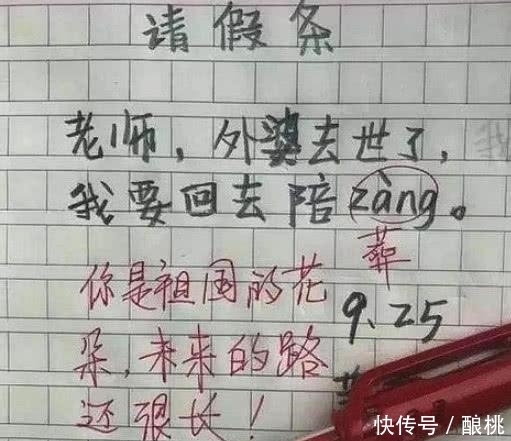 请假条
老师，外婆去世了，
我要回去陪zàng。
葬
你是祖国的花
朵，未来的路
还很长！
9.25
快传号／酿桃